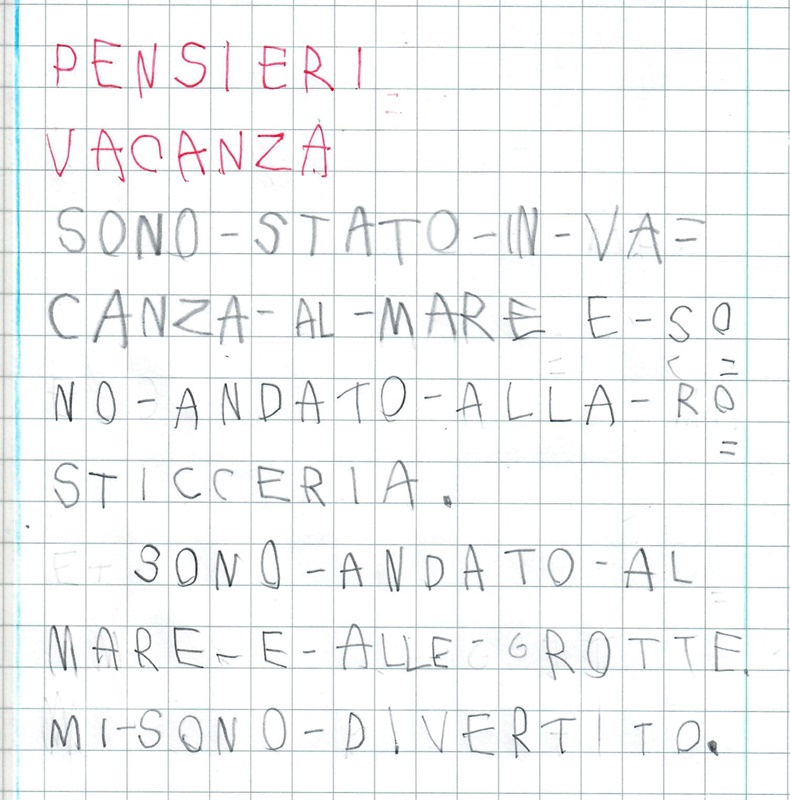 PENSIERI
VACANZA
SONO-STATO-IN-VA=
CANZA-AL-MARE E-SO
=
NO-ANDATO-ALLA-RO
=
STICCERIA.
SONO-ANDATO-AL
MARE-E-ALLE-GROTTE.
MI-SONO-DIVERTITO.